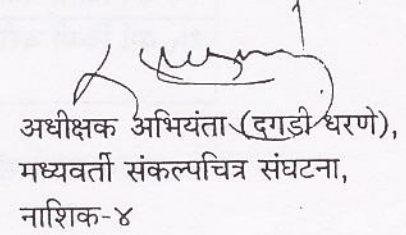 अधीक्षक अभियंता (दगडी धरणे),
मध्यवर्ती संकल्पचित्र संघटना,
नाशिक-४